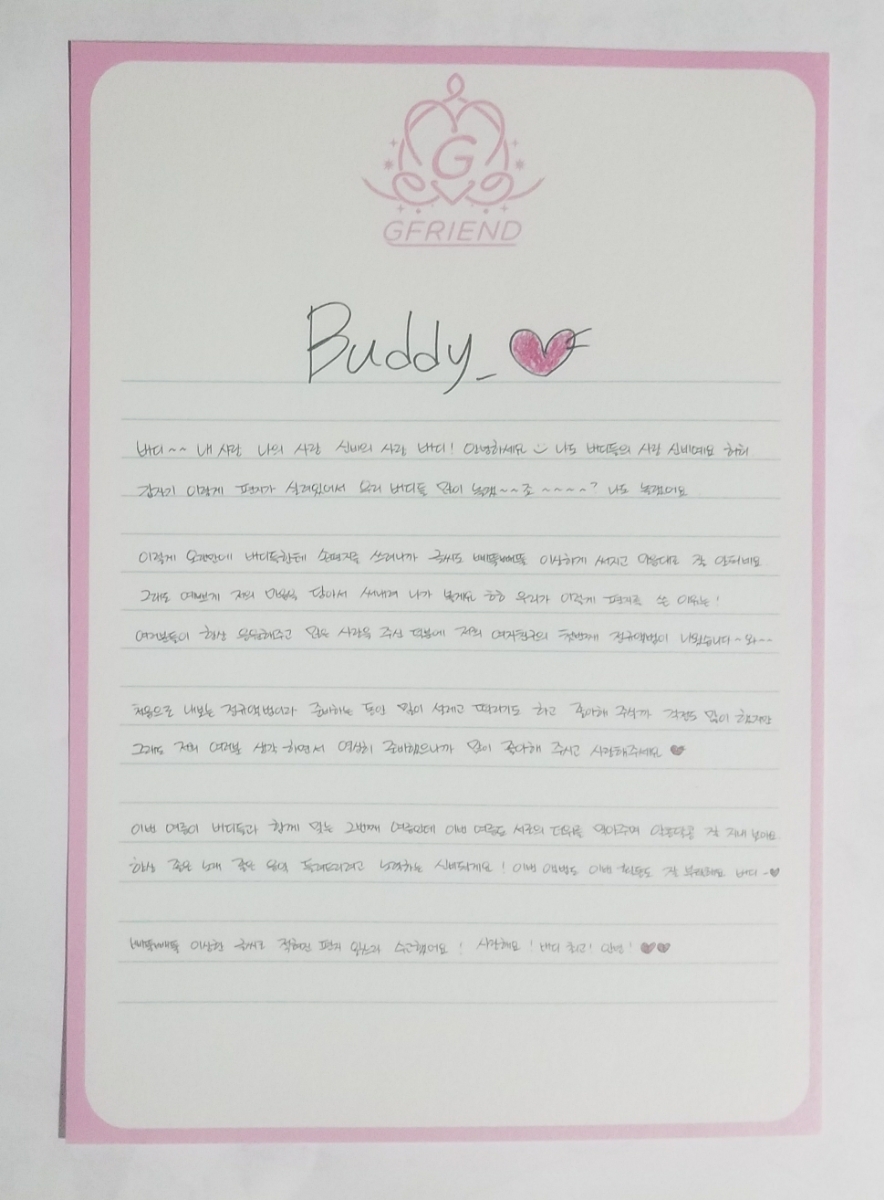 G
GFRIEND
Buddy_
버디~~ 내 사랑 나의 사랑 신비의 사랑 버디! 안녕하세요 나도 버디들의 사랑 신비예요 히히
갑자기 이렇게 편지가 실려있어서 우리 버디들 많이 놀랬~~죠~~~~? 나도 놀랬어요
이렇게 오랜만에 버디들한테 손편지를 쓰려니까 글씨도 삐뚤빼뚤 이상하게 써지고 마음대로 잘 안되네요
그래도 예쁘게 저의 마음을 담아서 써내려 나가 볼게요 흐흐 우리가 이렇게 편지를 쓴 이유는!
여러분들이 항상 응원해주고 많은 사랑을 주신 덕분에 저희 여자친구의 첫번째 정규앨범이 나왔습니다~와~~
처음으로 내보는 정규앨범이라 준비하는 동안 많이 설레고 떨리기도 하고 좋아해 주실까 걱정도 많이 했지만
그래도 저희 여러분 생각 하면서 열심히 준비했으니까 많이 좋아해 주시고 사랑해주세요
이번 여름이 버디들과 함께 맞는 2번째 여름인데 이번 여름도 서로의 더위를 잊어주며 알콩달콩 잘 지내 보아요
항상 좋은 노래 좋은 음악 들려드리려고 노력하는 신비될게요! 이번 앨범도 이번 활동도 잘 부탁해요 버디~
삐뚤빼뚤 이상한 글씨로 적혀진 편지 읽느라 수고했어요! 사랑해요! 버디 최고! 안녕!